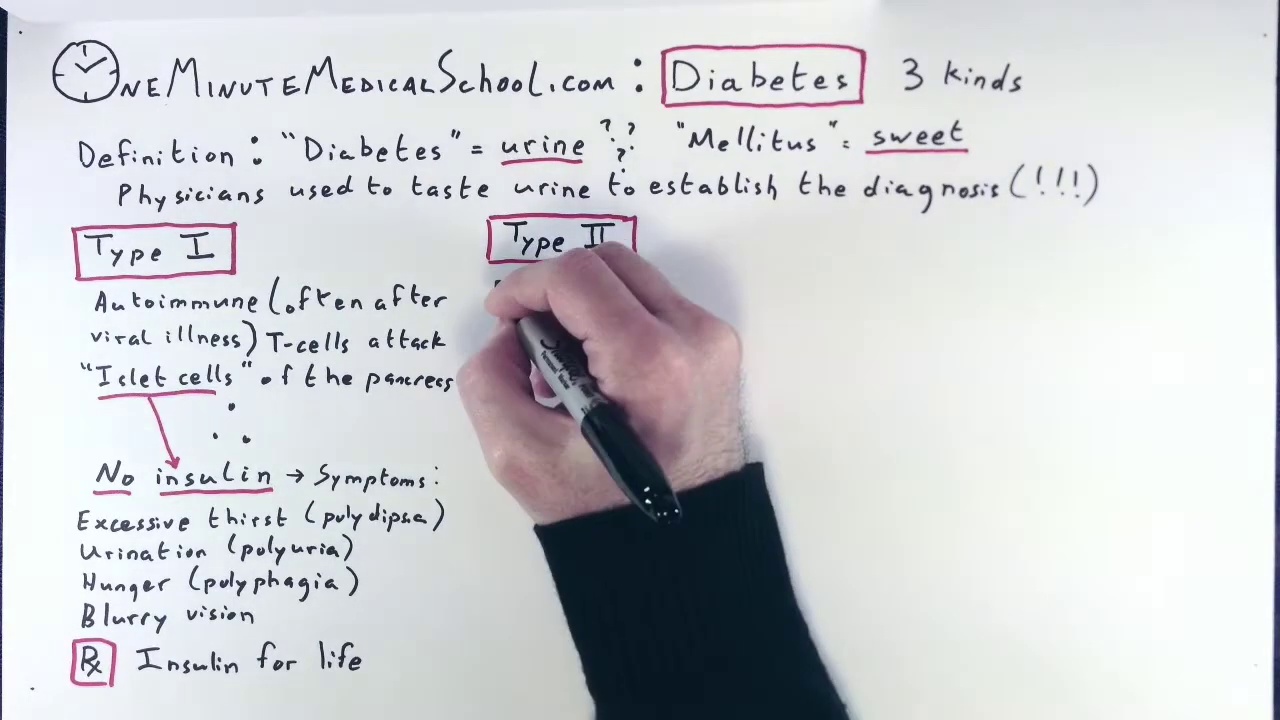 OneMinuteMedicalSchool.com : Diabetes 3 kinds
Definition : "Diabetes" = urine ??? "Mellitus" = sweet
Physicians used to taste urine to establish the diagnosis (!!!)
Type I
Autoimmune (often after
viral illness) T-cells attack
"Islet cells" of the pancreas
No insulin → Symptoms:
Excessive thirst (polydipsia)
Urination (polyuria)
Hunger (polyphagia)
Blurry vision
Rx Insulin for life
Type II